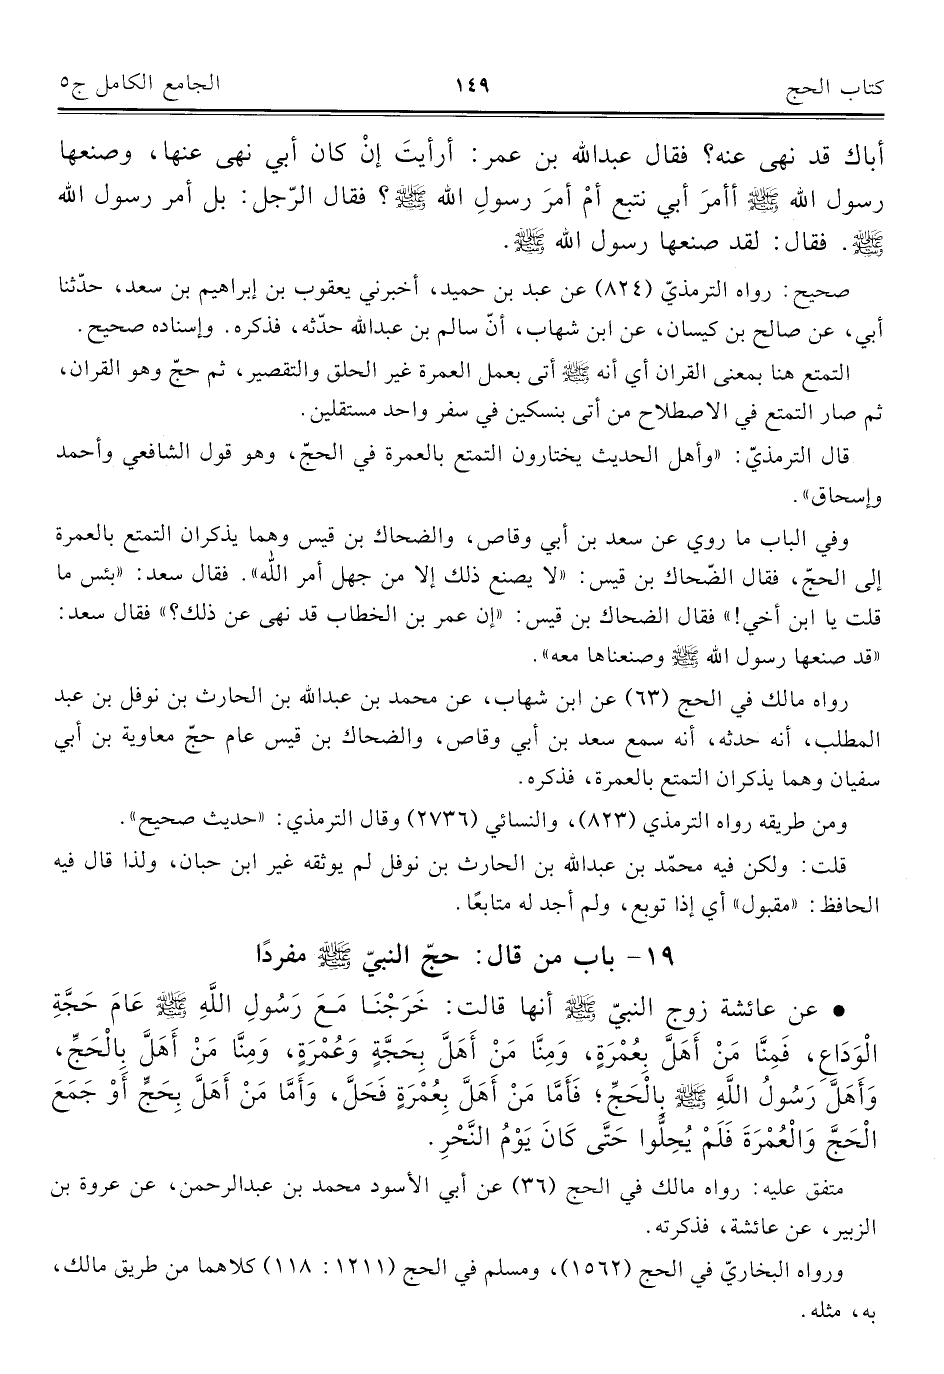 كتاب الحج ١٤٩ الجامع الكامل ج٥
أباك قد نهى عنه؟ فقال عبدالله بن عمر: أرأيتَ إنْ كان أبي نهى عنها، وصنعها
رسول الله ﷺ أأمرَ أبي نتبع أمْ أمرَ رسولِ الله ﷺ؟ فقال الرّجل: بل أمر رسول الله
ﷺ. فقال: لقد صنعها رسول الله ﷺ.
صحيح: رواه الترمذيّ (٨٢٤) عن عبد بن حميد، أخبرني يعقوب بن إبراهيم بن سعد، حدّثنا
أبي، عن صالح بن كيسان، عن ابن شهاب، أنّ سالم بن عبدالله حدّثه، فذكره. وإسناده صحيح.
التمتع هنا بمعنى القران أي أنه ﷺ أتى بعمل العمرة غير الحلق والتقصير، ثم حجّ وهو القران،
ثم صار التمتع في الاصطلاح من أتى بنسكين في سفر واحد مستقلين.
قال الترمذيّ: «وأهل الحديث يختارون التمتع بالعمرة في الحجّ، وهو قول الشافعي وأحمد
وإسحاق».
وفي الباب ما روي عن سعد بن أبي وقاص، والضحاك بن قيس وهما يذكران التمتع بالعمرة
إلى الحجّ، فقال الضّحاك بن قيس: «لا يصنع ذلك إلا من جهل أمر الله». فقال سعد: «بئس ما
قلت يا ابن أخي!» فقال الضحاك بن قيس: «إن عمر بن الخطاب قد نهى عن ذلك؟» فقال سعد:
«قد صنعها رسول الله ﷺ وصنعناها معه».
رواه مالك في الحج (٦٣) عن ابن شهاب، عن محمد بن عبدالله بن الحارث بن نوفل بن عبد
المطلب، أنه حدثه، أنه سمع سعد بن أبي وقاص، والضحاك بن قيس عام حجّ معاوية بن أبي
سفيان وهما يذكران التمتع بالعمرة، فذكره.
ومن طريقه رواه الترمذي (٨٢٣)، والنسائي (٢٧٣٦) وقال الترمذي: «حديث صحيح».
قلت: ولكن فيه محمّد بن عبدالله بن الحارث بن نوفل لم يوثقه غير ابن حبان، ولذا قال فيه
الحافظ: «مقبول» أي إذا توبع، ولم أجد له متابعًا.
١٩- باب من قال: حجّ النبيّ ﷺ مفردًا
• عن عائشة زوج النبيّ ﷺ أنها قالت: خَرَجْنَا مَعَ رَسُولِ اللَّهِ ﷺ عَامَ حَجَّةِ
الْوَدَاعِ، فَمِنَّا مَنْ أَهَلَّ بِعُمْرَةٍ، وَمِنَّا مَنْ أَهَلَّ بِحَجَّةٍ وَعُمْرَةٍ، وَمِنَّا مَنْ أَهَلَّ بِالْحَجِّ،
وَأَهَلَّ رَسُولُ اللَّهِ ﷺ بِالْحَجِّ؛ فَأَمَّا مَنْ أَهَلَّ بِعُمْرَةٍ فَحَلَّ، وَأَمَّا مَنْ أَهَلَّ بِحَجٍّ أَوْ جَمَعَ
الْحَجَّ وَالْعُمْرَةَ فَلَمْ يُحِلُّوا حَتَّى كَانَ يَوْمُ النَّحْرِ.
متفق عليه: رواه مالك في الحج (٣٦) عن أبي الأسود محمد بن عبدالرحمن، عن عروة بن
الزبير، عن عائشة، فذكرته.
ورواه البخاريّ في الحج (١٥٦٢)، ومسلم في الحج (١٢١١: ١١٨) كلاهما من طريق مالك،
به، مثله.